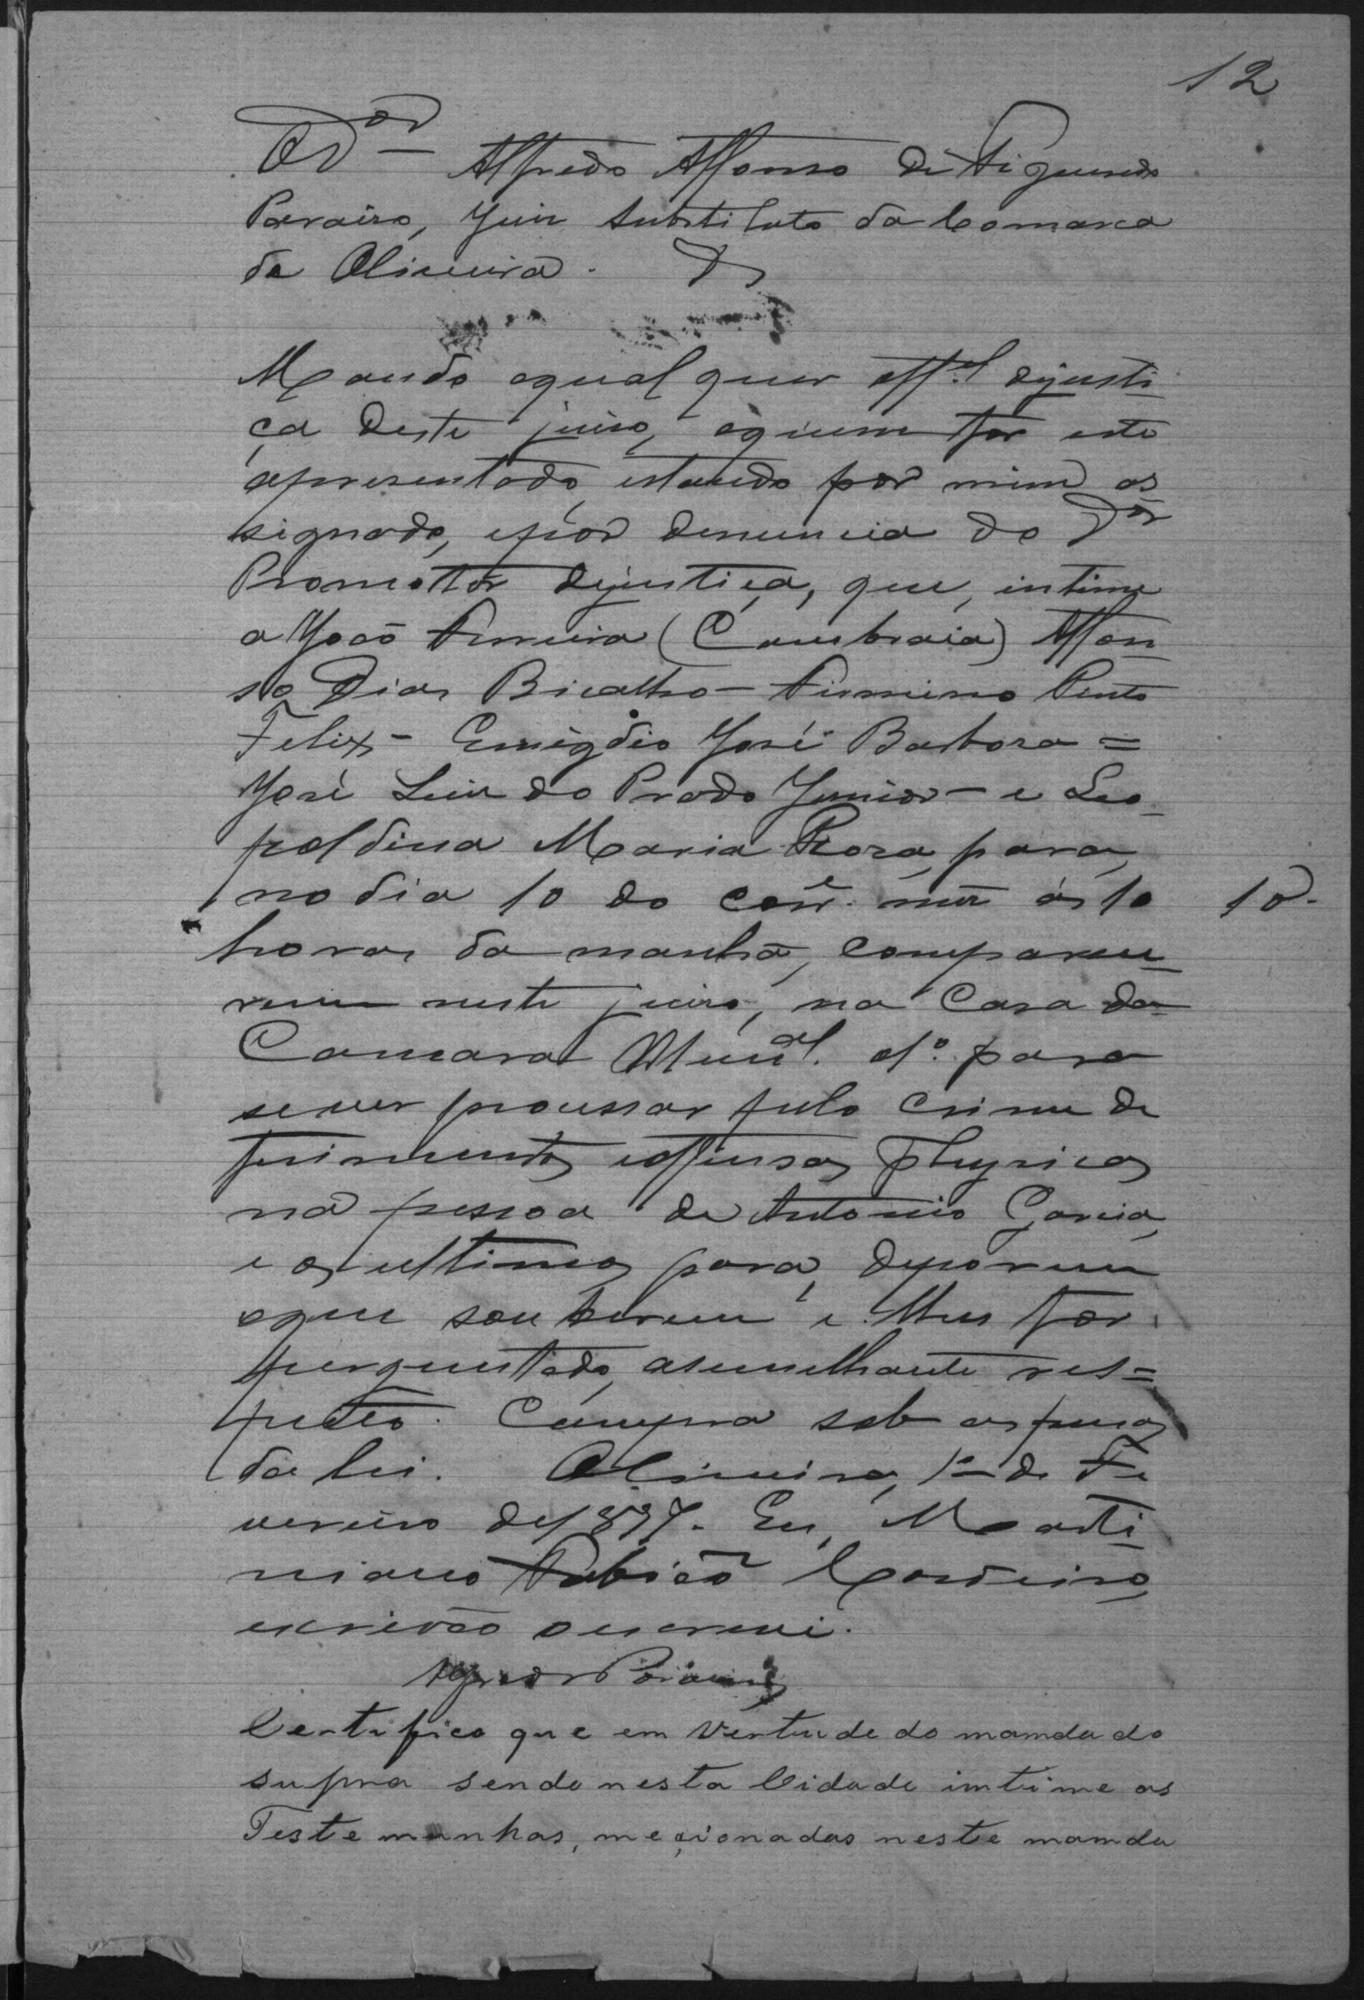 12
O Dor Alfredo Affonso de Figueiredo
Paraiso, Juiz Substituto da Comarca
de Oliveira.
Mando aqual quer offal dejusti-
ça deste juizo, aquem for este
apresentado, estando por mim as
signado, epor denuncia do Dor
Promottor dejustiça, que, intime
a João Ferreira (Cambraia) Affon-
so Dias Bicalho - Firmino Pinto
Felix - Emigdio José Barbosa =
José Luiz do Prado Junior - e Leo-
poldina Maria Roza, para,
no dia 10 do corre. mez ás 10
10-
horas da manhã, comparece-
rem neste juizo, na Casa da
Camara Munal. o 1º. para
sever processar pelo crime de
ferimentos eoffensas physicas
na pessoa de Antonio Garcia,
e os ultimos para, deporem
oque souberem e lhes for
perguntado, asemelhante res=
peito. Cumpra sob as penas
da lei. Oliveira, 1º de Fe
vereiro de 1897. Eu, Marti-
niano Fabião Cordeiro,
escrivão o escrevi.
Alfredo Paraiso
Certifico que em Vertude do mamdado
supra sendo nesta Cidade imtime as
Testemunhas, meçionadas neste mamda